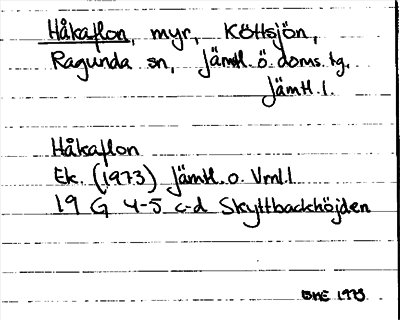 Håkaflon, myr, Köttsjön,
Ragunda sn, Jämtl. ö. doms. tg.
Jämtl. l.
Håkaflon
Ek. (1973) Jämtl. o. Vrnl.l
19 G 4-5 c-d Skyttbackhöjden
1973